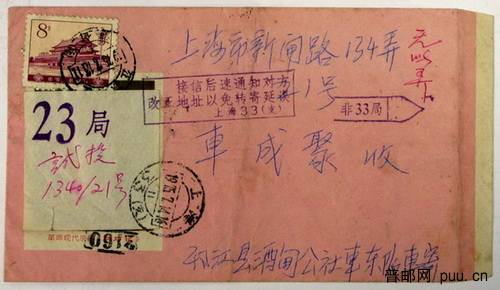 8分
上海市新闸路134弄
1号
无此弄
接信后速通知对方
改正地址以免转寄延误
上海33(支)
非33局
23局
試投
1340/21号
車成聚 收
上海
160
邗江县酒甸公社
普邮网/puu.cn